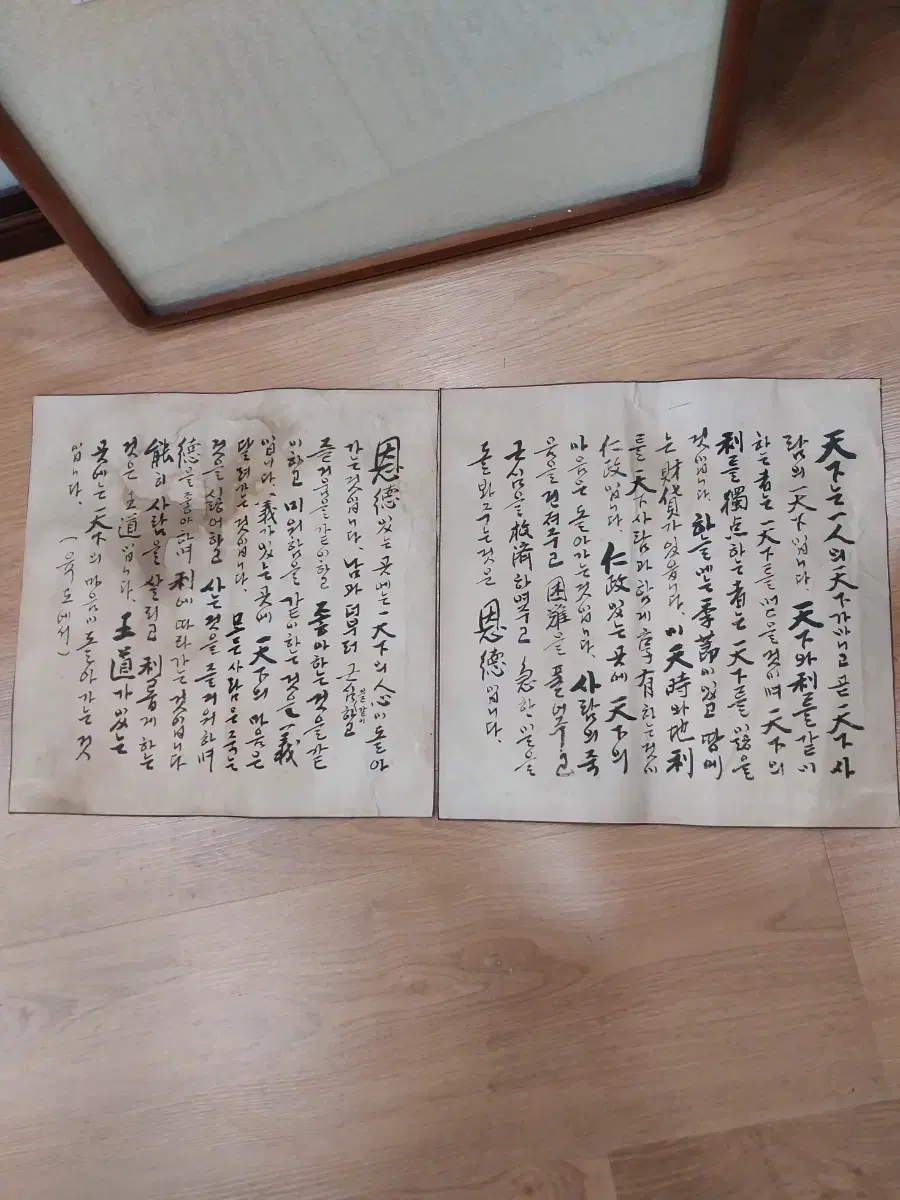 天下는 一人의 天下가 아니고 곧 天下 사
람의 天下입니다. 天下와 利를 같이
하는 者는 天下를 얻을 것이며 天下의
利를 獨点하는 者는 天下를 잃을
것입니다. 하늘에는 季節이 있고 땅에
는 財貨가 있읍니다. 이 天時와 地利
를 天下 사람과 함께 享有하는 것이
仁政입니다. 仁政 있는 곳에 天下의
마음은 돌아가는 것입니다. 사람의 죽
음을 건져주고 困難을 풀어주고
근심을 救済하여주고 急한 일을
돌봐 주는 것은 恩德입니다.
恩德 있는 곳에는 天下의 人心이 돌아
가는 것입니다. 남과 더부터 근심하고
즐거움을 같이하고 좋아하는 것을 같
이하고 미워함을 같이 하는 것을 義
입니다. 義가 있는 곳에 天下의 마음은
달려가는 것입니다. 모든 사람은 죽는
것을 싫어하고 사는 것을 즐거워하며
德을 좋아하며 利에 따라가는 것입니다
能히 사람을 살리고 利롭게 하는
것은 王道입니다. 王道가 있는
곳에는 天下의 마음이 돌아가는 것
입니다.
(육도에서)